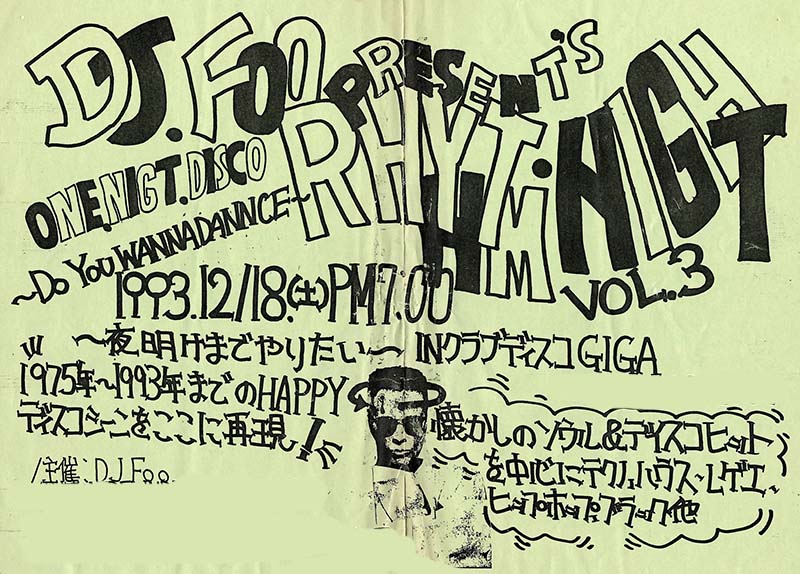 DJ.FOO PRESENT'S
ONE.NIGT.DISCO RHYTHM.NIGHT
~DO YOU WANNA DANNCE~
VOL.3
1993.12/18.(土)PM7:00
~夜明けまでやりたい~ INクラブディスコGIGA
1975年~1993年までのHAPPY
ディスコシーンをここに再現!
/主催:D.J.Foo.
懐かしのソウル&ディスコヒット
を中心にテクノ,ハウス~レゲエ~
ヒップホップ,ブラック他